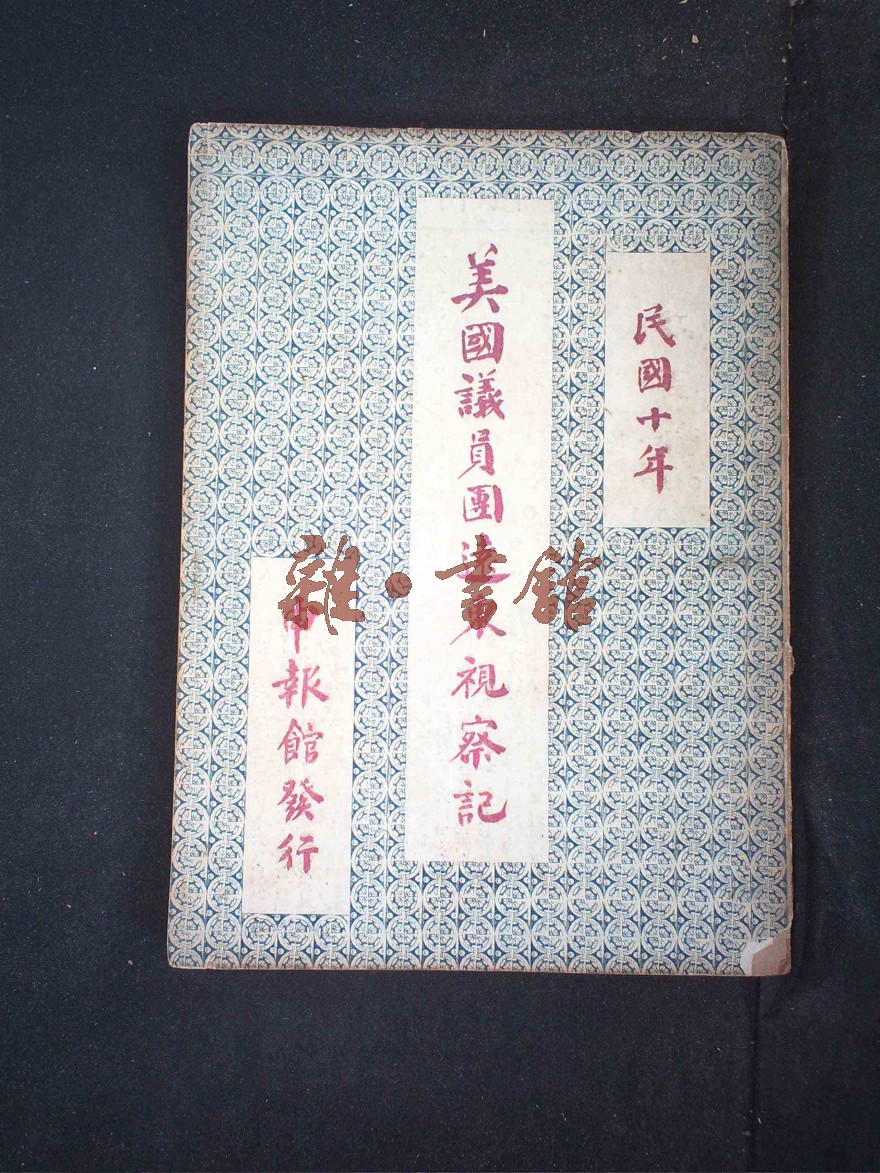 民國十年
美國議員團遠東視察記
報館發行
雜·書館